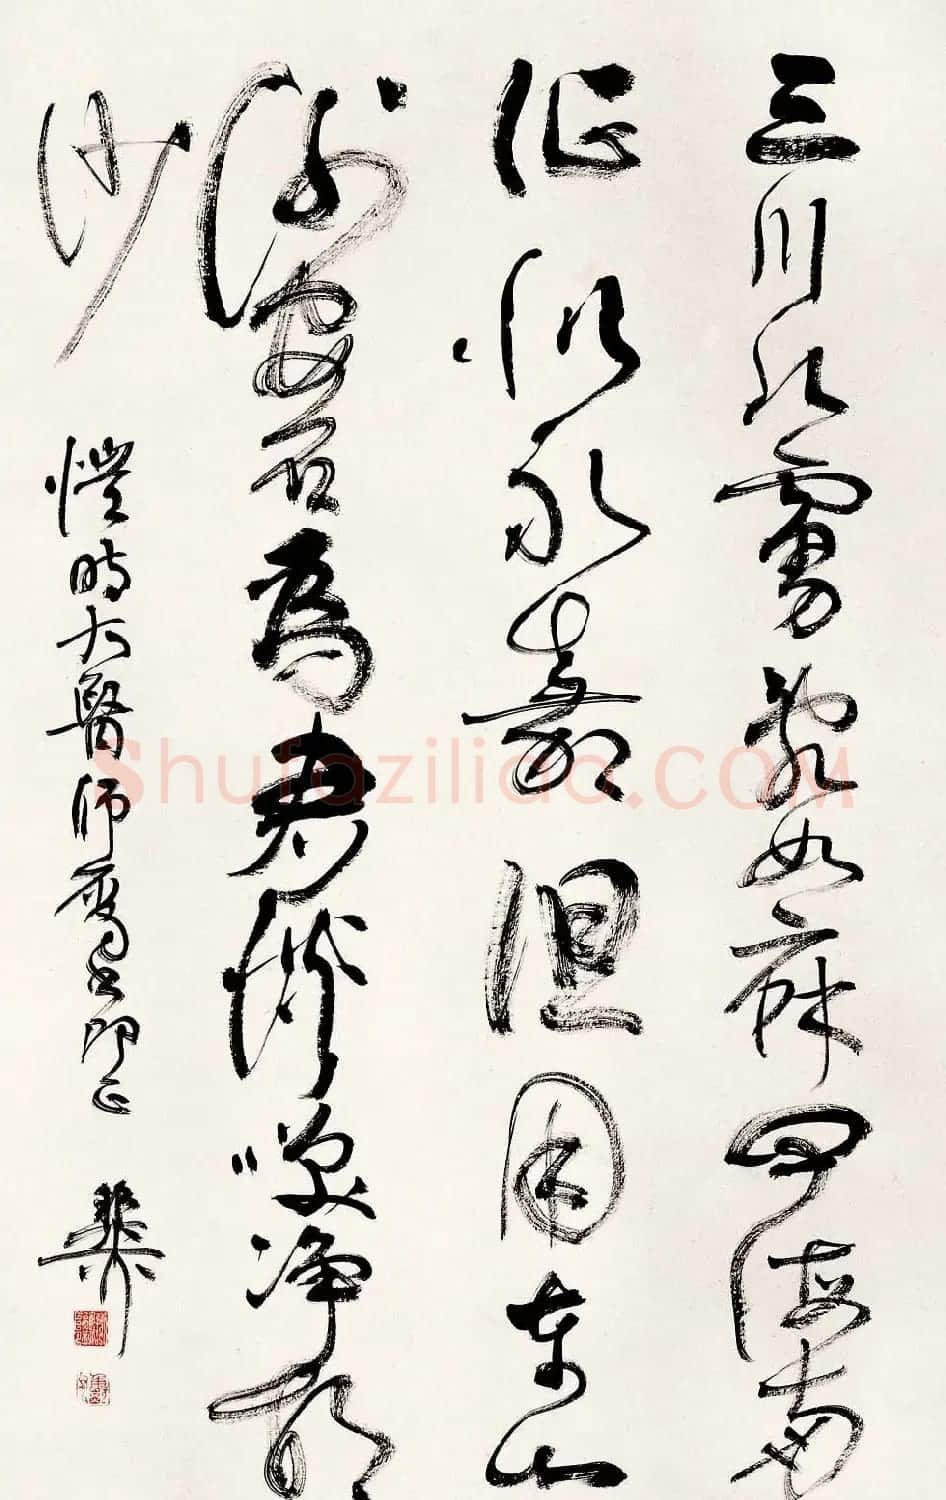 三川北虜亂如麻四海南
征似永嘉但用東山
謝安石為君談笑淨胡
沙
愷時大醫師屬書即正
Shufaziliao.COM